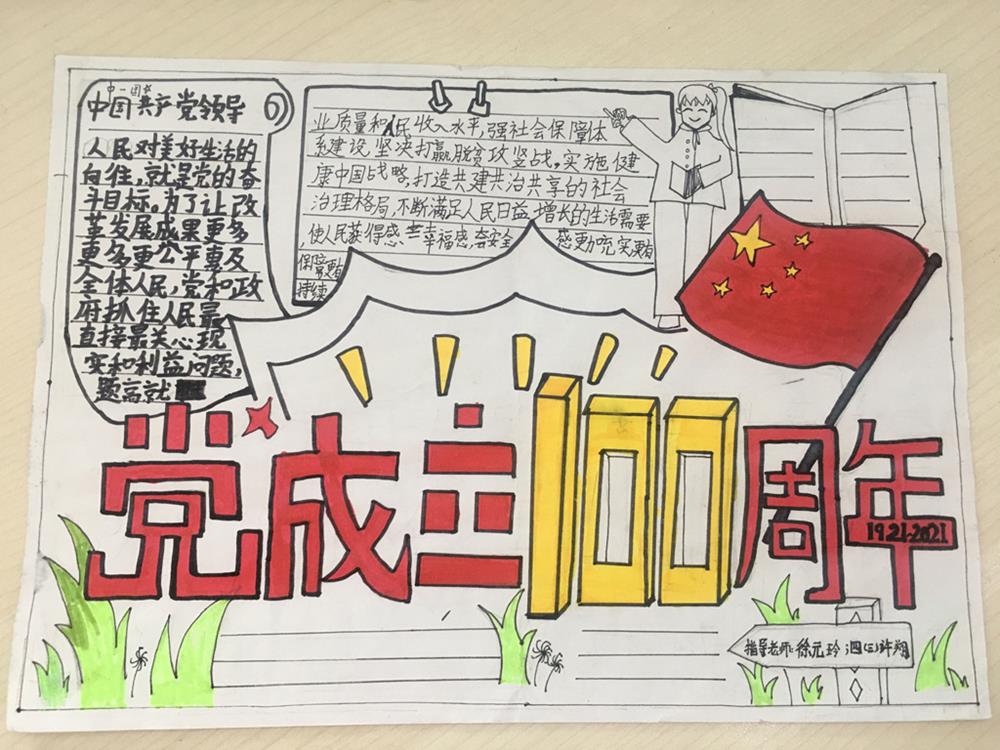 中国共产党领导
人民对美好生活的
向往，就是党的奋
斗目标，为了让改
革发展成果更多
更多更公平惠及
全体人民，党和政
府抓住人民最
直接最关心现
实和利益问题，
题高就
业质量和人民收入水平，强社会保障体
系建设，坚决打赢脱贫攻坚战。实施健
康中国战略，打造共建共治共享的社会
治理格局，不断满足人民日益增长的生活需要
，使人民获得感 幸福感，安全 感更动 充实更有
保障更有
持续
党成立100周年
1921-2021
指导老师：徐元玲 四(三)许翔